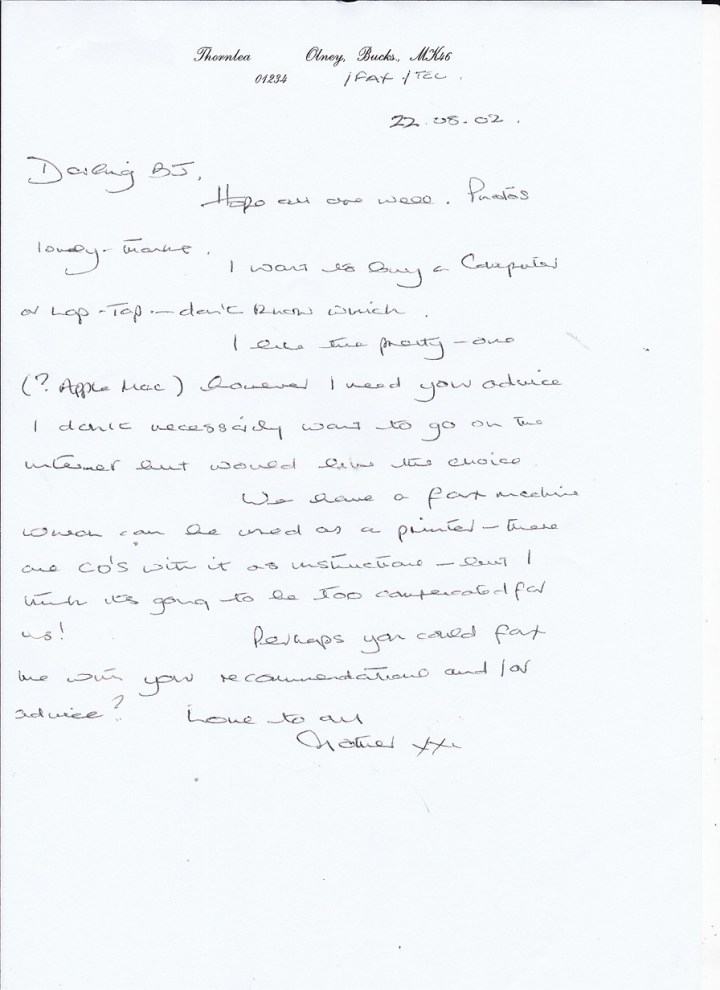 Thornlea Olney, Bucks., MK46
01234 / FAX / TEL.
22.08.02.
Darling BJ,
Hope all are well. Photos
lovely - thanks.
I want to buy a Computer
or Lap-Top - don't know which.
I like the pretty - one
(? Apple Mac) however I need your advice
I don't necessarily want to go on the
internet but would like the choice
We have a fax machine
which can be used as a printer - there
are CD's with it as instructions - but I
think it's going to be too complicated for
us!
Perhaps you could fax
me with your recommendations and/or
advice?
Love to all
Mother xxx